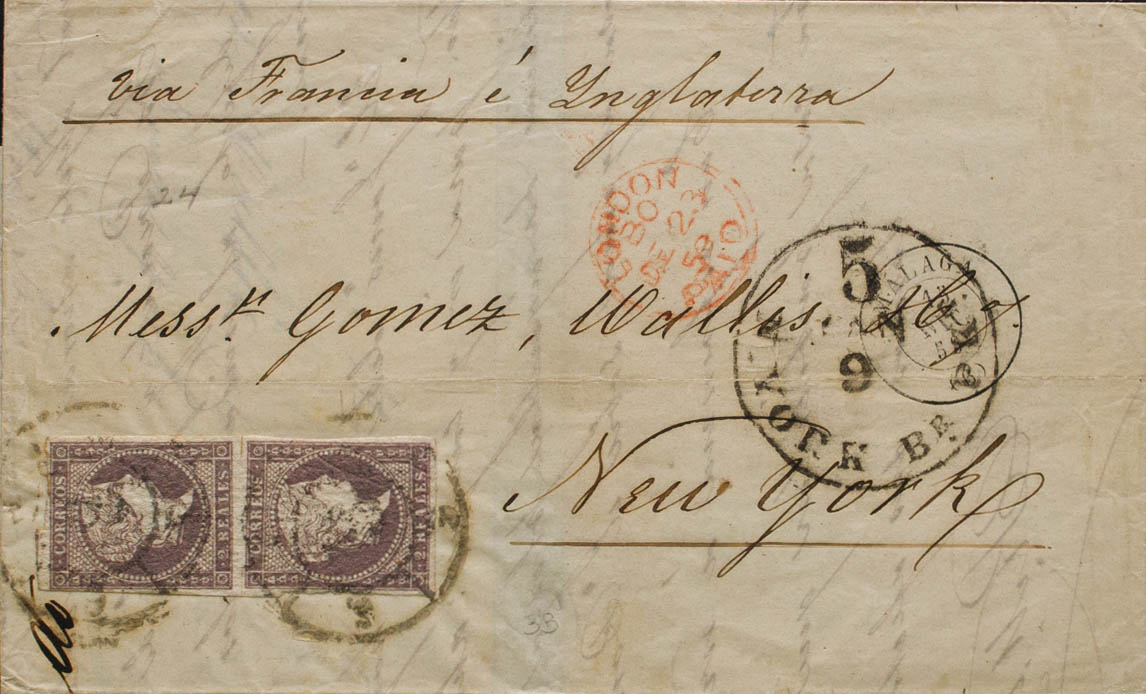 via Francia é Ynglaterra
24
LONDON
BO
DE 23
58
PAID
Messrs. Gomez, Wallis, & Co.
5
9
YORK BR
MALAGA
DIC.
(8)
New York
CORREOS 2 REALES
CORREOS 2 REALES
38